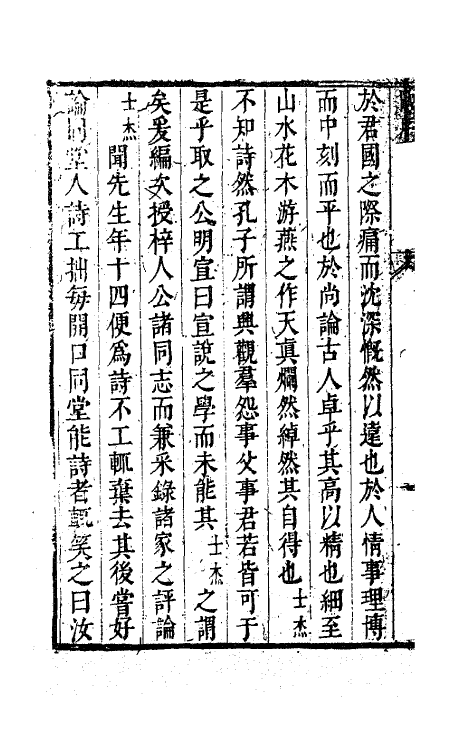 於君國之際痛而沈深慨然以遠也於人情事理博
而中刻而平也於尚論古人卓乎其高以精也細至
山水花木游燕之作天真爛然綽然其自得也士杰
不知詩然孔子所謂興觀羣怨事父事君若皆可于
是乎取之公明宣曰宣說之學而未能其士杰之謂
矣爰編次授梓人公諸同志而兼采錄諸家之評論
士杰聞先生年十四便為詩不工輒棄去其後嘗好
論同堂人詩工拙每開口同堂能詩者輒笑之曰汝